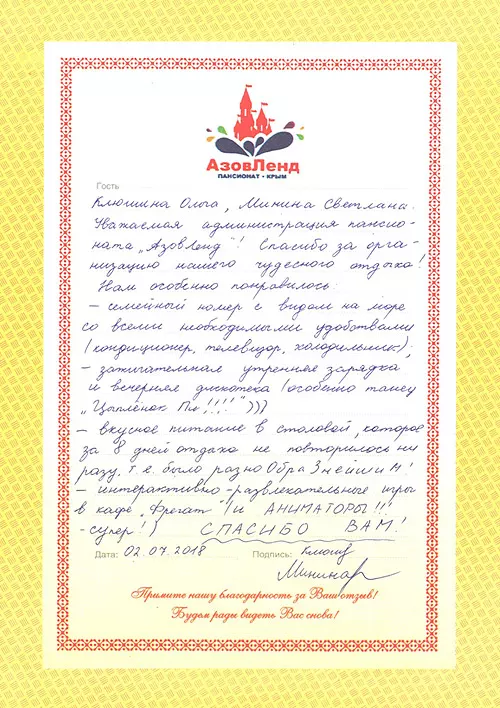 АзовЛенд
ПАНСИОНАТ • КРЫМ
Гость
Клюшина Ольга, Минина Светлана.
Уважаемая администрация пансио-
ната „АзовЛенд"! Спасибо за орга-
низацию нашего чудесного отдыха!
Нам особенно понравилось:
– семейный номер с видом на море
со всеми необходимыми удобствами
(кондиционер, телевизор, холодильник);
– зажигательная утренняя зарядка
и вечерняя дискотека (особенно танец
„Цыплёнок Пи!!!!")))
– вкусное питание в столовой, которое
за 8 дней отдыха не повторилось ни
разу, т.е. было разнообразнейшим!
– интерактивно-развлекательные игры
в кафе „Фрегат" (и АНИМАТОРЫ!!!
-супер!) СПАСИБО ВАМ!
Дата: 02.07.2018 Подпись: Клюш
Минина
Примите нашу благодарность за Ваш отзыв!
Будем рады видеть Вас снова!